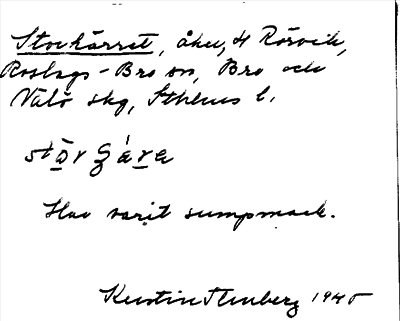 Stockärret, åker, t Rörvik,
Roslags-Bro sn, Bro och
Väto skg, Sthlms l.
Har varit sumpmark.
Kerstin Flenberg 1945